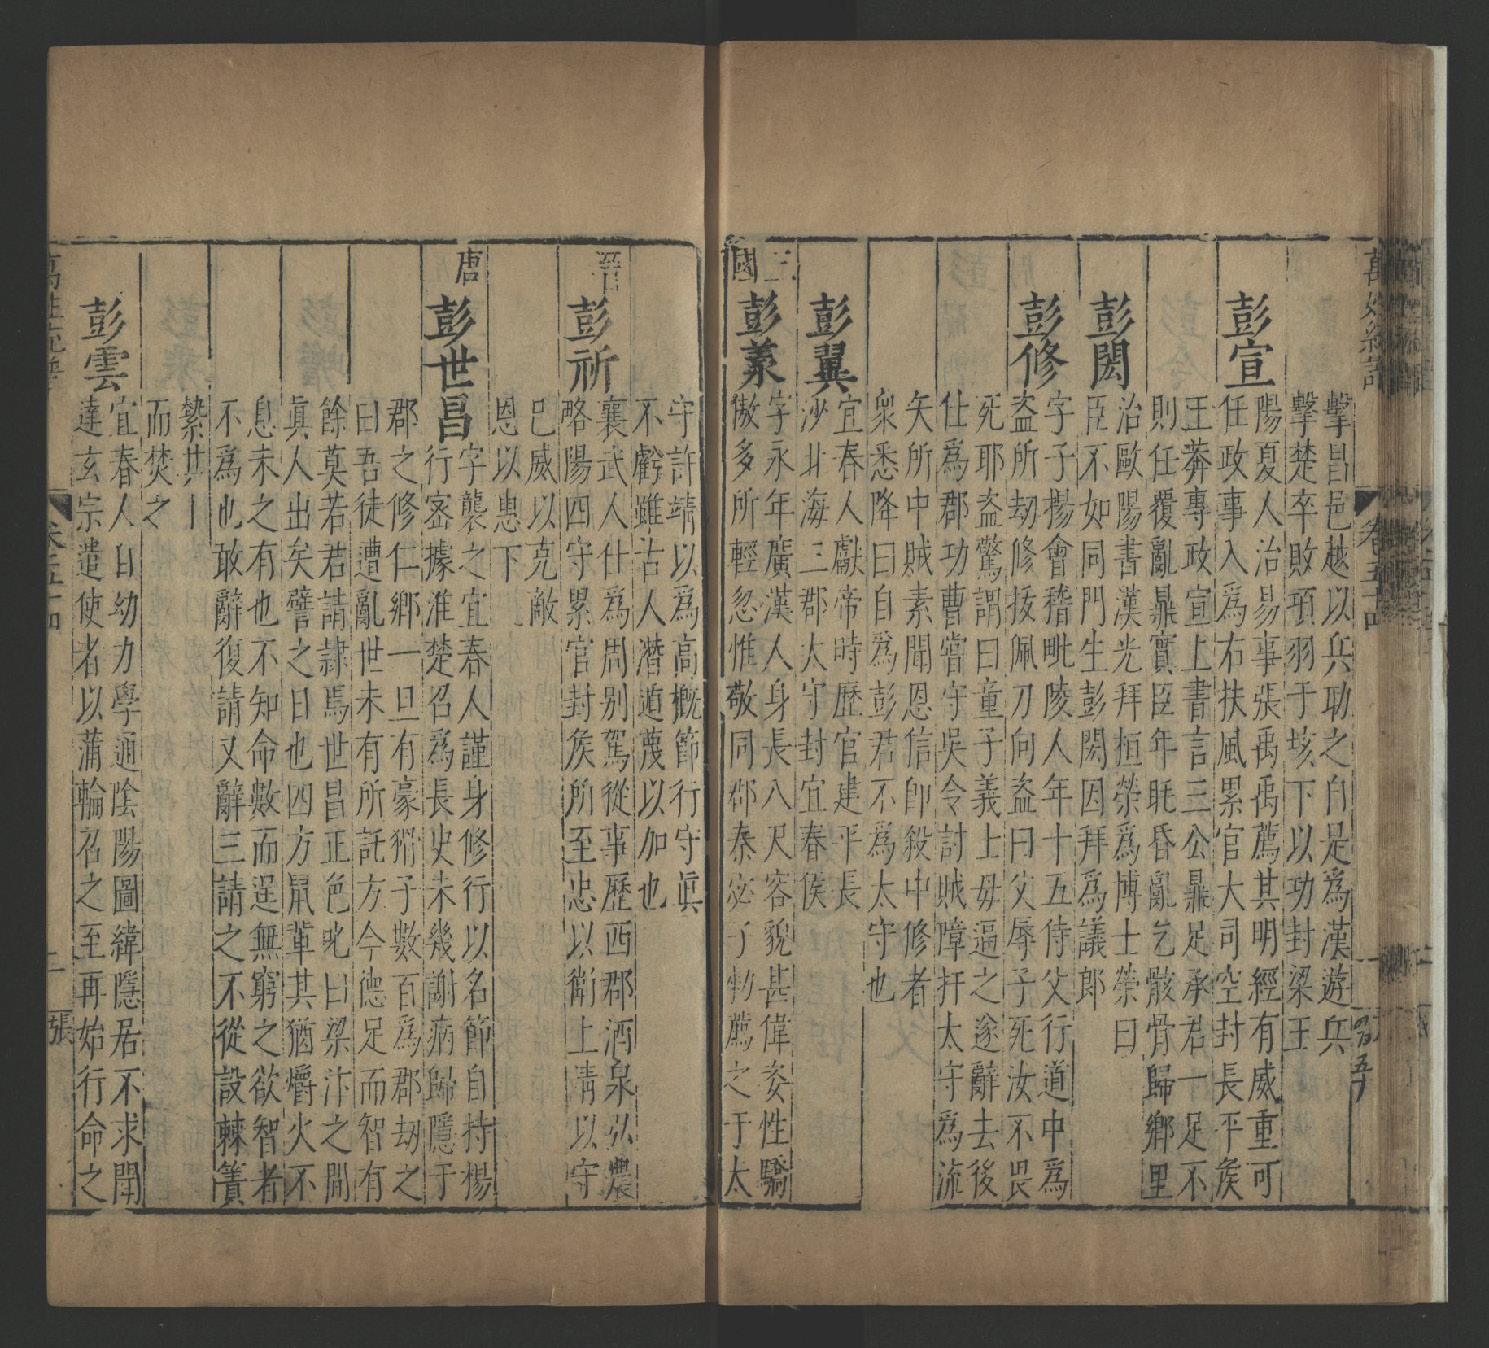 擊昌邑越以兵功之自是爲漢遊兵
擊楚卒敗項羽于垓下以功封梁王
彭宣
陽夏人治易事張禹禹薦其明經有威重可
任政事入爲右扶風累官大司空封長平矦
王莽專政宣上書言三公鼎足承君一足不
則任覆亂鼎實臣年眊昏亂乞骸骨歸鄉里
彭閎
治歐陽書漢光拜桓榮爲博士榮曰
臣不如同門生彭閎因拜爲議郎
彭修
字子揚會稽毗陵人年十五侍父行道中爲
盗所劫修拔佩刀向盗曰父辱子死汝不畏
死耶盗驚謂曰童子義士毋逼之遂辭去後
仕爲郡功曹嘗守吳令討賊障扞太守爲流
矢所中賊素聞恩信卽殺中修者
衆悉降曰自爲彭君不爲太守也
彭翼
宜春人獻帝時歷官建平長
沙北海三郡太守封宜春侯
三國
彭羕
字永年廣漢人身長八尺容貌甚偉姿性驕
傲多所輕忽惟敬同郡秦宓子勑薦之于太
守許靖以爲高概節行守眞
不虧雖古人潛遁蔑以加也
晉
彭祈
襄武人仕爲周别駕從事歷西郡酒泉弘農
略陽四守累官封矦所至忠以衛上淸以守
巳威以克敵
恩以惠下
唐
彭世昌
字襲之宜春人謹身修行以名節自持楊
行密據淮楚召爲長史未幾謝病歸隱于
郡之修仁鄉一旦有豪猾子數百爲郡劫之
曰吾徒遭亂世未有所託方今德足而智有
餘莫若君請隷馬世昌正色叱曰梁汴之間
眞人出矣譬之日也四方鼠軰其猶爝火不
息未之有也不知命數而逞無窮之欲智者
不爲也敢辭復請又辭三請之不從設棘簀
縶其
而焚之
彭雲
宜春人自幼力學通陰陽圖緯隱居不求聞
達玄宗遣使者以蒲輪召之至再始行命之